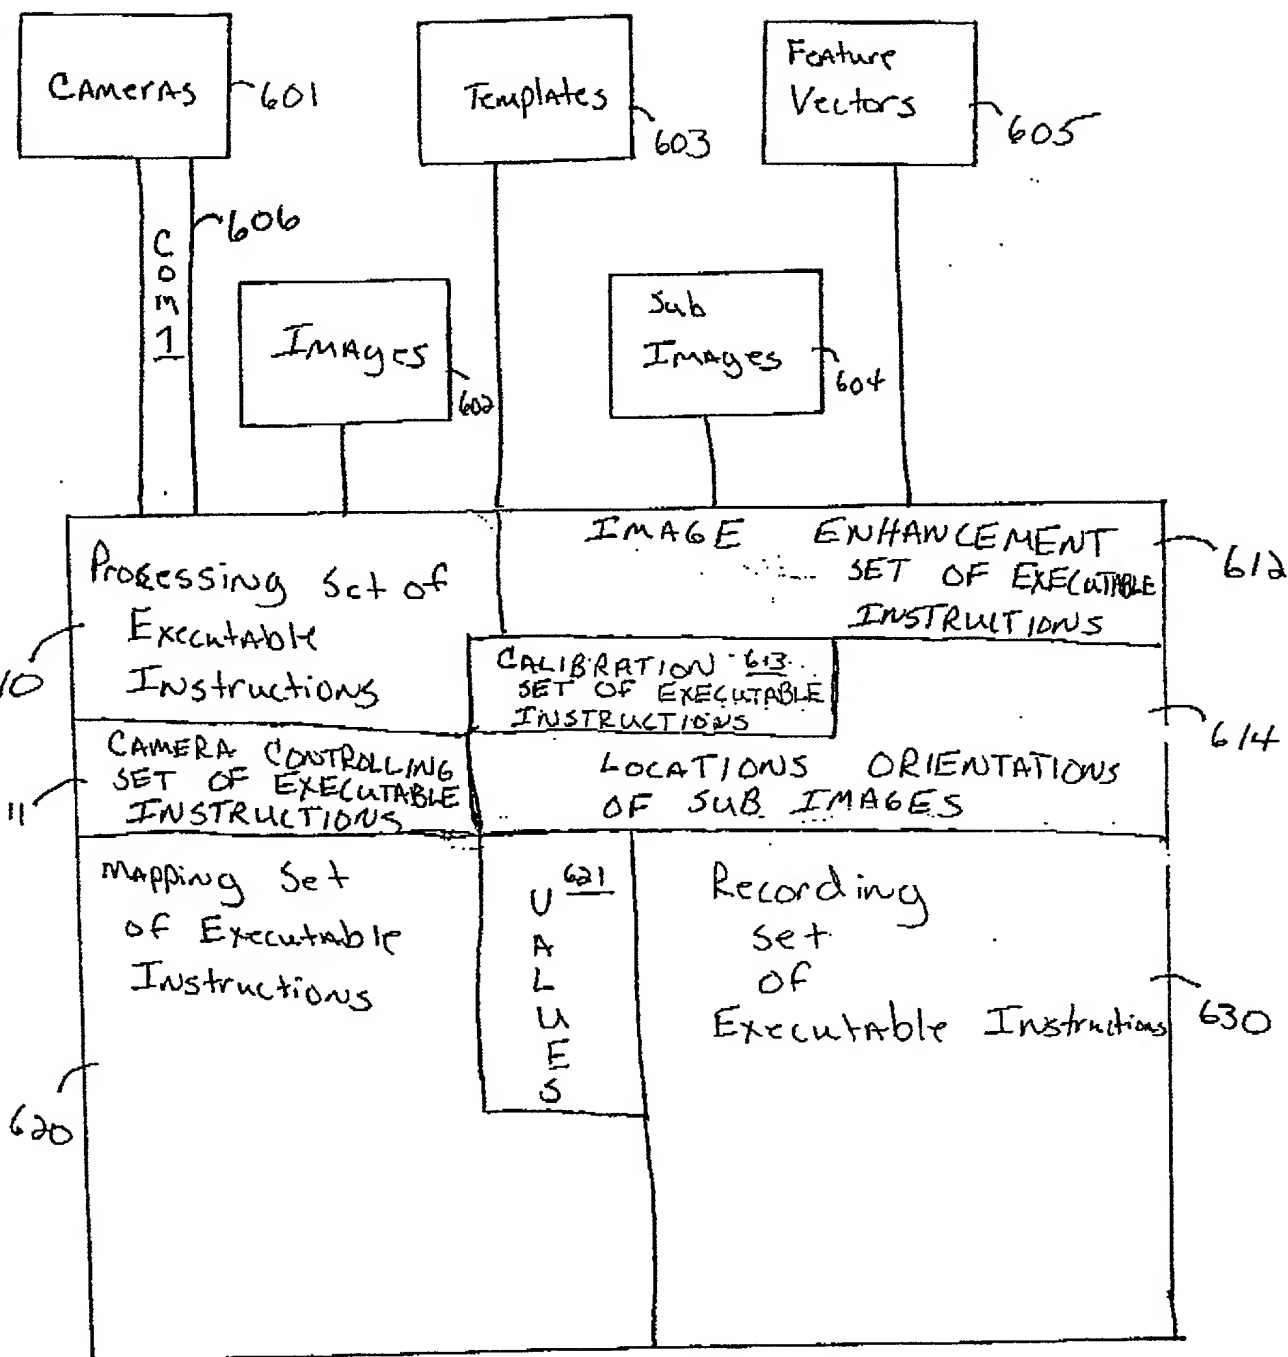 CAMERAS
601
Templates
603
Feature
Vectors
605
606
COM1
Images
602
Sub
Images
604
Processing Set of
Executable
Instructions
10
IMAGE ENHANCEMENT
SET OF EXECUTABLE
INSTRUCTIONS
612
CALIBRATION 613
SET OF EXECUTABLE
INSTRUCTIONS
614
CAMERA CONTROLLING
SET OF EXECUTABLE
INSTRUCTIONS
11
LOCATIONS ORIENTATIONS
OF SUB IMAGES
Mapping Set
of Executable
Instructions
620
621
VALUES
Recording
Set
of
Executable Instructions
630